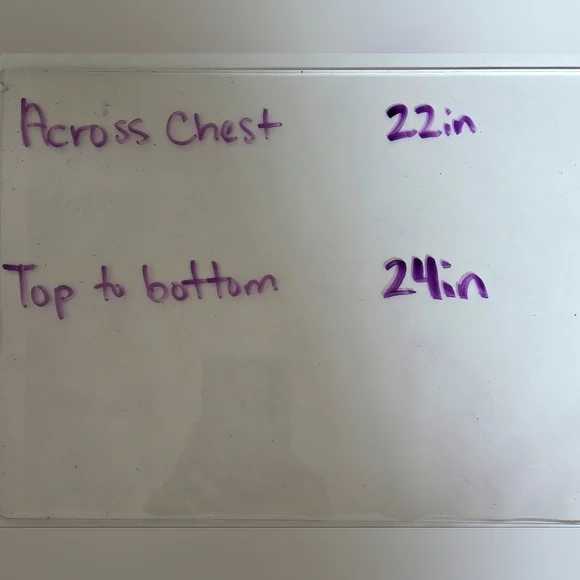 Across Chest 22in
Top to bottom 24in